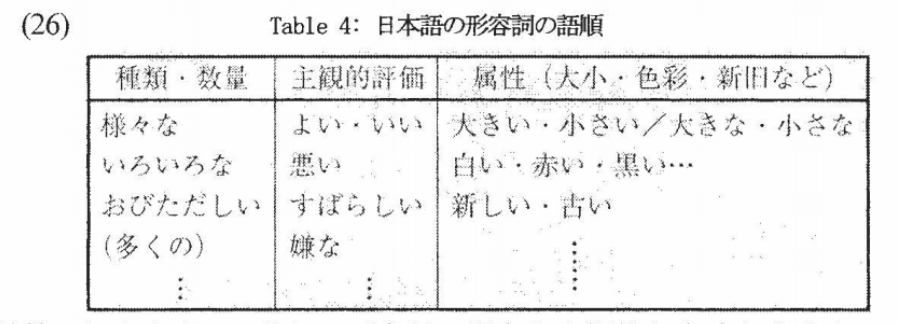 (26)
Table 4: 日本語の形容詞の語順
種類・数量 主観的評価 属性（大小・色彩・新旧など）
様々な よい・いい 大きい・小さい／大きな・小さな
いろいろな 悪い 白い・赤い・黒い…
おびただしい すばらしい 新しい・古い
(多くの) 嫌な ⋮
⋮ ⋮